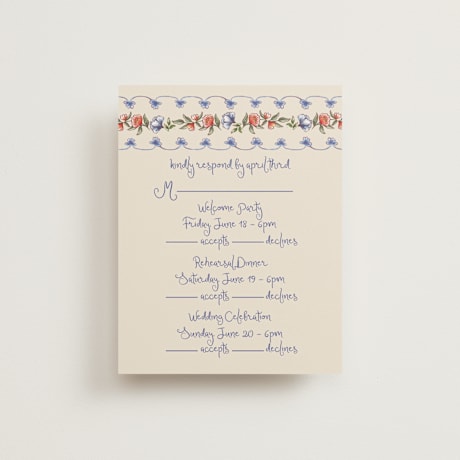 kindly respond by april third
M
Welcome Party
Friday June 18 - 6pm
accepts declines
Rehearsal Dinner
Saturday June 19 - 6pm
accepts declines
Wedding Celebration
Sunday June 20 - 6pm
accepts declines